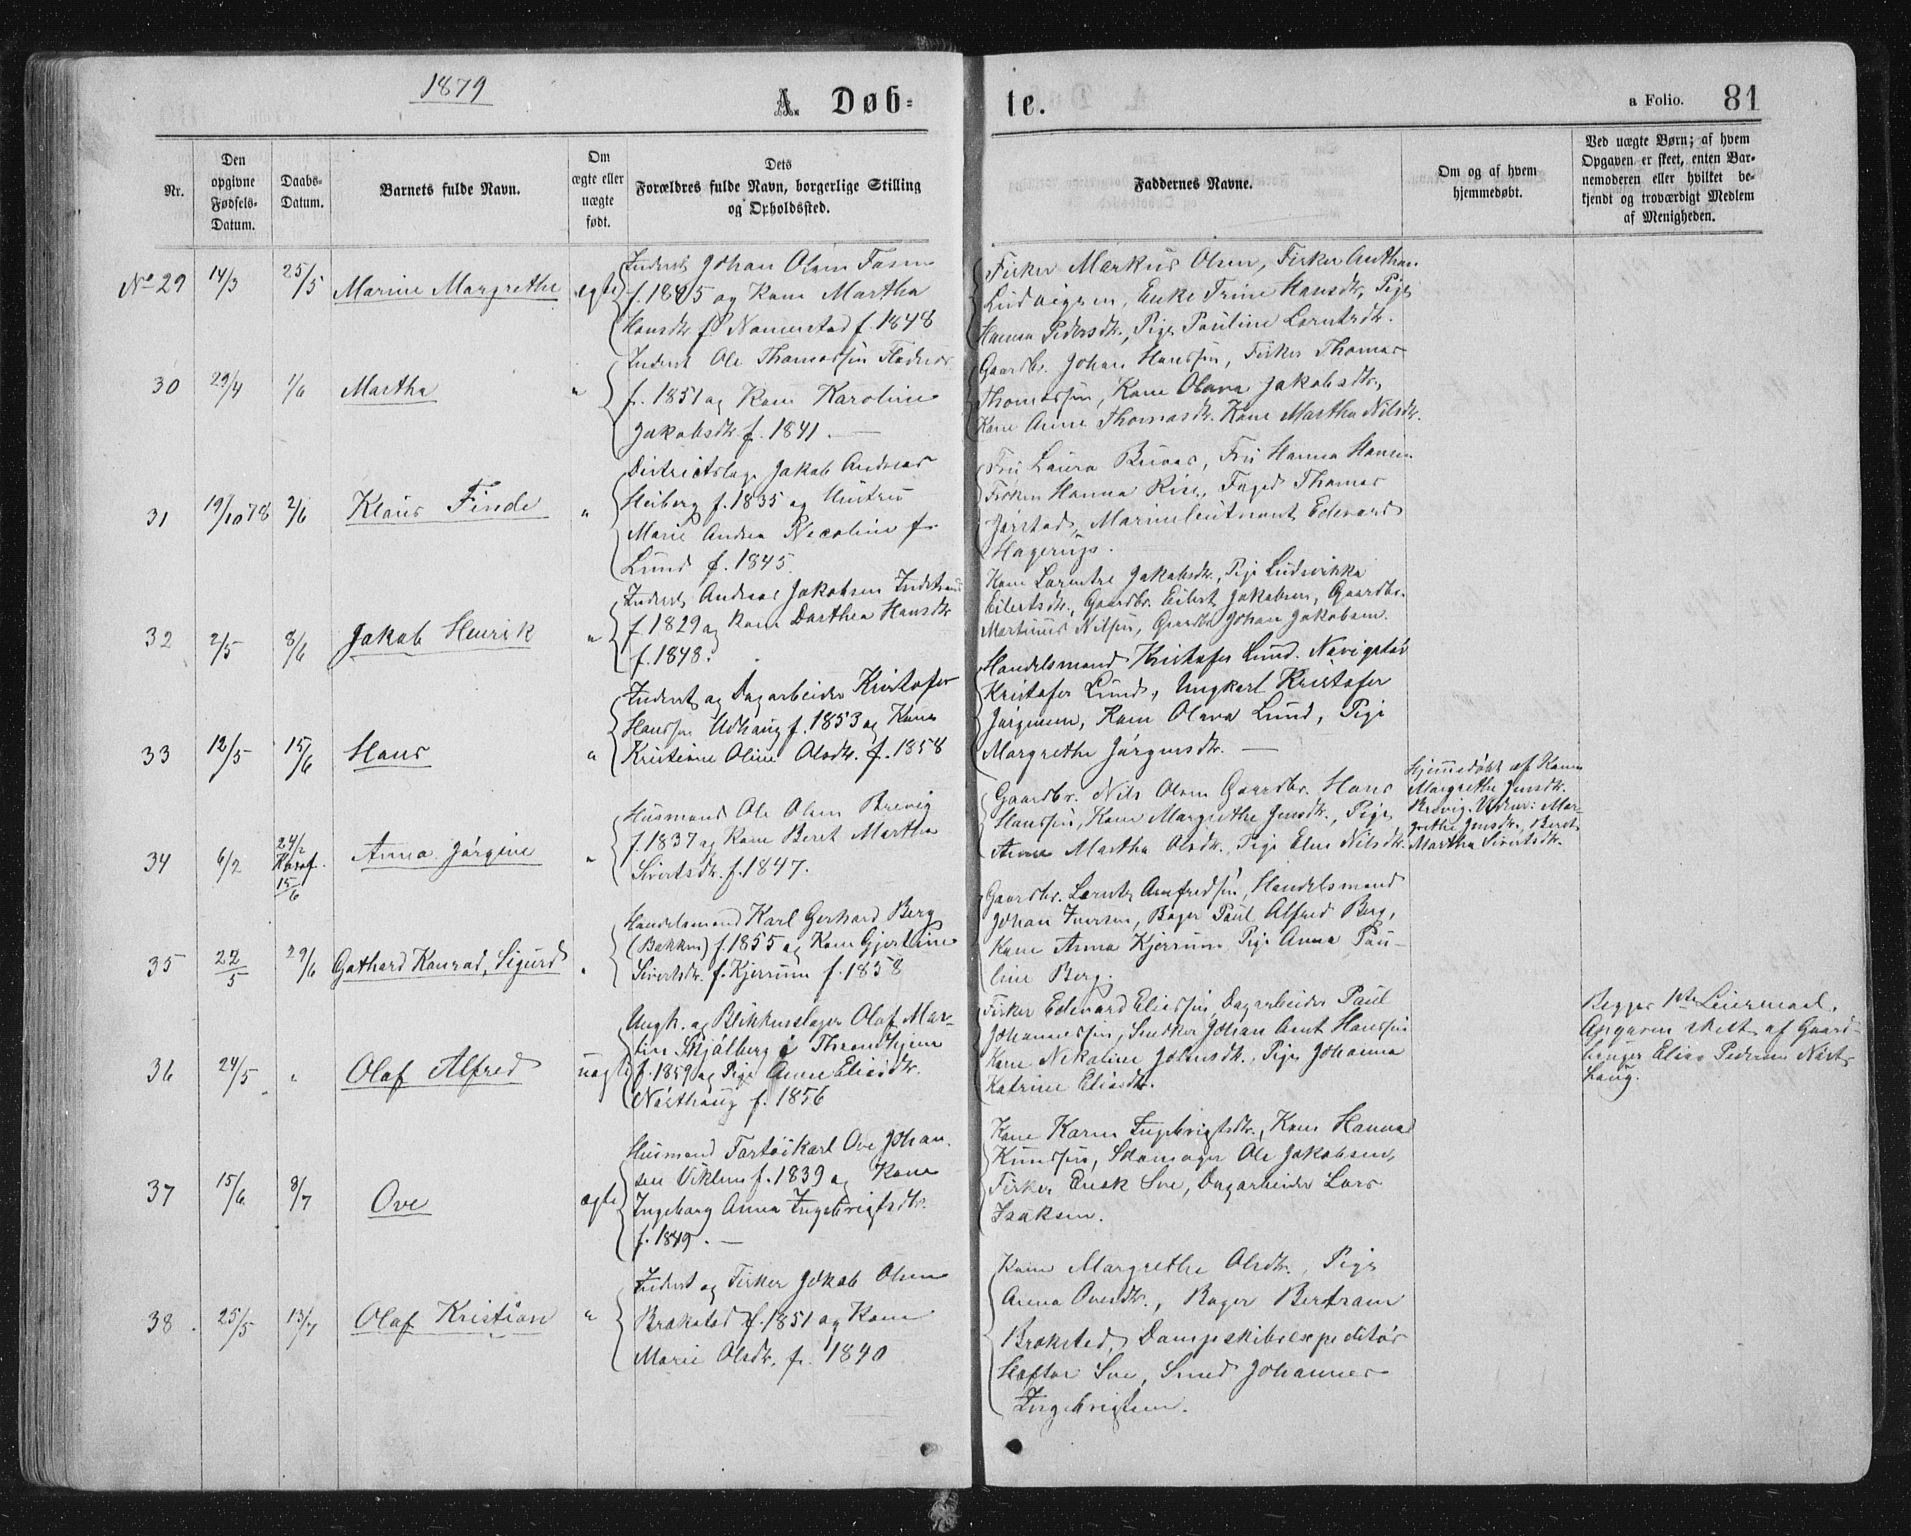 1879
A. Døb-
te.
a Folio. 81
Nr.
Den opgivne Fødsels-Datum.
Daabs-Datum.
Barnets fulde Navn.
Om ægte eller uægte født.
Dets Forældres fulde Navn, borgerlige Stilling og Opholdssted.
Faddernes Navne.
Om og af hvem hjemmedøbt.
Ved uægte Børn; af hvem Opgaven er skeet, enten Barnemoderen eller hvilket bekjendt og troværdigt Medlem af Menigheden.
No 29 14/3 25/5 Marine Margrethe ægte
Inderst Johan Olsen
f. 1845 og Kone Martha
Hansdtr f. 1848
Fisker Markus Olsen, Fisker Anthon
Ludvigsen, Enke Trine Hansdtr, Pige
Hanna Pedersdtr., Pige Pauline Lorntsdtr.
30 29/4 1/6 Martha "
Inderst Ole Thomassen
f. 1851 og Kone Karoline
Jakobsdtr f. 1841.
Gaardbr. Johan Hanssen, Fisker Thomas
Thomassen, Kone Olava Jakobsdtr,
Kone Anne Thomasdtr. Kone Martha Nilsdtr.
31 19/10 78 2/6 Klaus Finde "
Districtslæge Jakob Andreas
Heiberg f. 1835 og Hustru
Marie Andrea Nicoline f.
Lund f. 1845.
Fru Laura Buvas, Fru Hanna Hansen
Frøken Hanna Rise, Foged Thomas
Jørstad, Marinelieutnant Edevard
Hagerup.
32 2/5 8/6 Jakob Henrik "
Inderst Andreas Jakobsen
f. 1829 og Kone Dorthea Hansdtr
f. 1848.
Kone Lorentse Jakobsdtr., Pige Ludvikka
Eilertsdtr., Gaardbr. Eilert Jakobsen, Gaardbr.
Martinus Nilsen, Gaardbr Johan Jakobsen.
33 12/5 15/6 Hans "
Inderst og Dagarbeider Kristofer
Hanssen Udhaug f. 1853 og Kone
Kristiane Oline Olsdtr. f. 1858
Handelsmand Kristofer Lund. Navigatør
Kristofer Lund, Ungkarl Kristofer
Jørgensen, Kone Olava Lund, Pige
Margrethe Jørgensdtr.
34 6/2 24/2 15/6 Anna Jørgine "
Husmand Ole Olsen Brevig
f. 1837 og Kone Beret Martha
Sivertsdtr. f. 1847.
Gaardbr. Nils Olsen Gaardbr. Hans
Hanssen, Kone Margrethe Jensdtr., Pige
Anne Martha Olsdtr. Pige Elen Nilsdtr.
Hjemmedøbt af Kone
Margrethe Jensdtr.
Brevig. Vidner: Mar-
grethe Jensdtr., Beret
Martha Sivertsdtr.
35 22/5 29/6 Gothard Konrad, Sigurd "
Handelsmand Karl Gerhard Berg
(Bakken) f. 1855 og Kone Gjertine
Sivertsdtr. f. Kjerrum f. 1858
Gaardbr. Lornts Arnfredsen, Handelsmand
Johan Iversen, Bager Paul Alfred Berg,
Kone Anna Kjerrum, Pige Anna Pau-
line Berg.
36 24/5 " Olaf Alfred uægte
Ungk. og Blikkenslager Olaf Mar-
tin Skjølberg i Throndhjem
f. 1859 og Pige Anne Eliasdtr.
Nørthaug f. 1856
Fisker Edevard Eliassen, Dagarbeider Paul
Johannessen, Snedker Johan Arnt Hanssen
Kone Nikoline Johnsdtr., Pige Johanna
Katrine Eliasdtr.
Begges 1ste Leiermaal.
Opgaven skeet af Gaard-
bruger Elias Pedersen Nørt-
haug.
37 15/6 8/7 Ove ægte
Husmand Ove Johan-
sen Viklem f. 1839 og Kone
Ingeborg Anna Ingebrigtsdtr.
f. 1849.
Kone Karen Ingebrigtsdtr., Kone Hanna
Knudsen, Skomager Ole Jakobsen,
Fisker Enok Sve, Dagarbeider Lars
Isaksen.
38. 25/5 13/7 Olaf Kristian "
Inderst og Fisker Jakob Olsen
Brakstad f. 1851 og Kone
Marie Olsdtr. f. 1840
Kone Margrethe Olsdtr., Pige
Anna Ovesdtr., Bager Bertram
Brakstad, Dampskibsexpeditør
Haftor Sve, Smed Johannes
Ingebrigtsen.